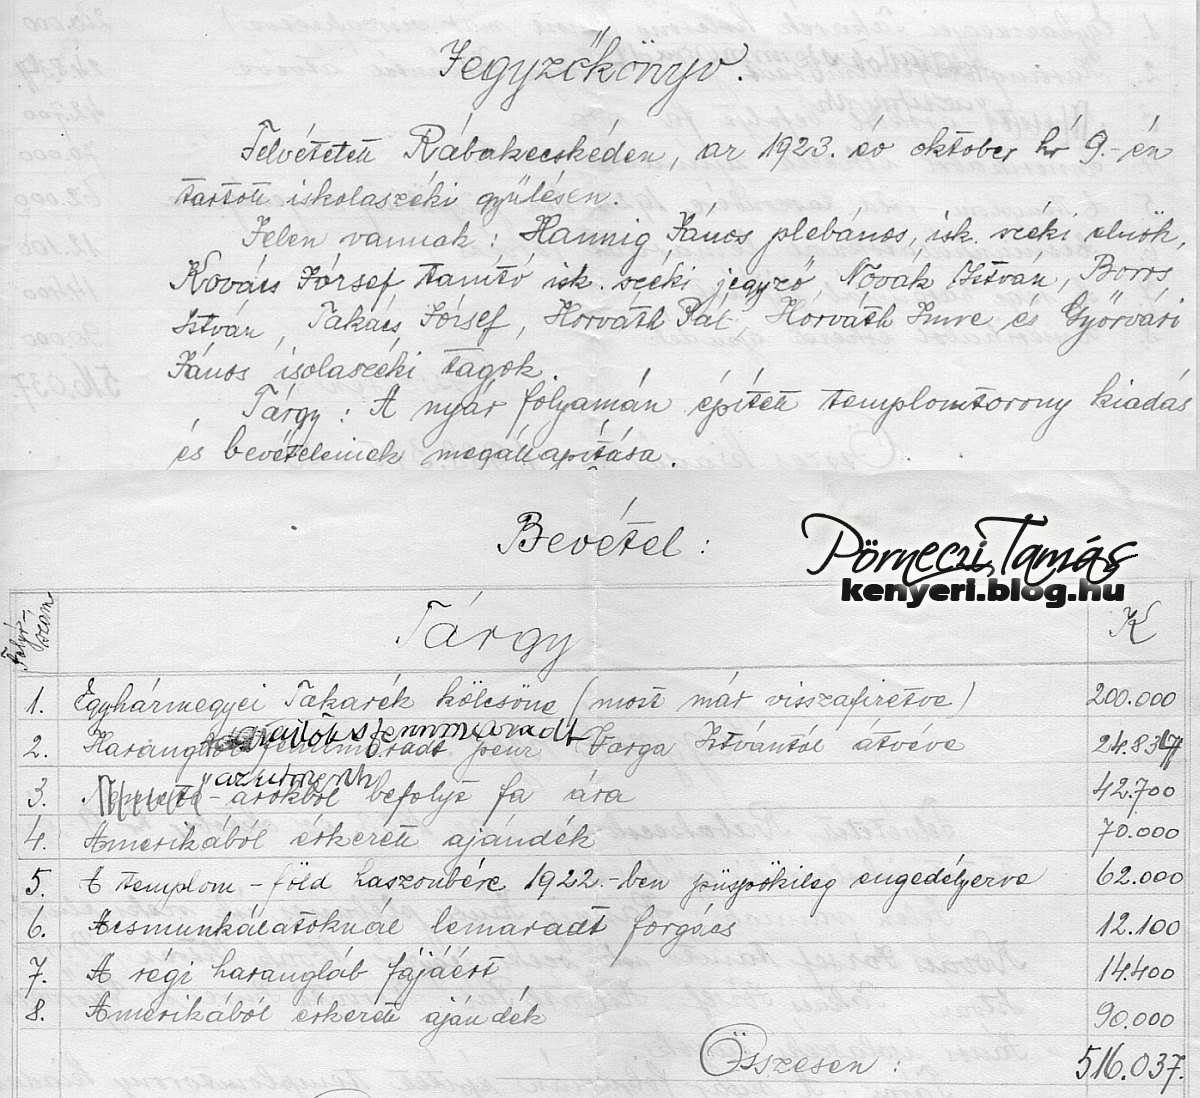 Jegyzőkönyv.
Felvétetett Rábakecskéden, az 1923. év október hó 9.-én
tartott iskolaszéki gyűlésen.
Jelen vannak: Hannig János plébános, isk. széki elnök,
Kovács József tanító isk. széki jegyző, Novák István, Boros
István, Takács József, Horváth Pál, Horváth Imre és Győrvári
János isolaszéki tagok.
Tárgy: A nyár folyamán épített templomtorony kiadás
és bevételeinek megállapítása.
Bevétel:
Pörneczi Tamás
kenyeri.blog.hu
Folyó-szám Tárgy K
1. Egyházmegyei Takarék kölcsöne (most már visszafizetve) 200.000
2. pénz Varga Istvántól átvéve 24.837
3. árokból befolyt fa ára 42.700
4. Amerikából érkezett ajándék 70.000
5. A templom-föld haszonbére 1922.-ben püspökileg engedélyezve 62.000
6. Ácsmunkálatoknál lemaradt forgács 12.100
7. A régi harangláb fájáért 14.400
8. Amerikából érkezett ajándék 90.000
Összesen: 516.037.